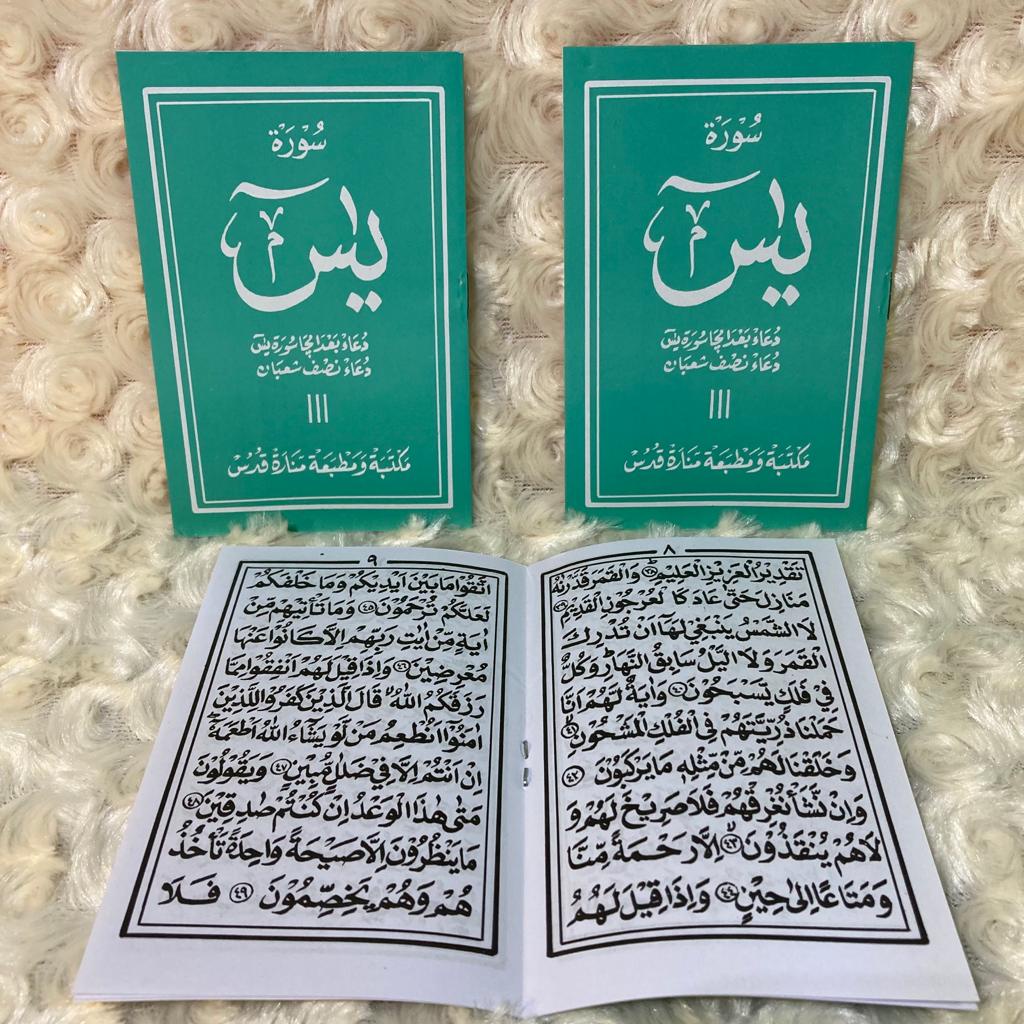 سُوْرَةْ
يٰسٓ
دُعَاءْ بَعْدَ باچا سُوْرَة يٰسٓ
دُعَاءْ نِصْف شَعْبَانْ
مَكْتَبَةْ وَمَطْبَعَةْ مَنَارَةْ قُدُسْ
سُوْرَةْ
يٰسٓ
دُعَاءْ بَعْدَ باچا سُوْرَة يٰسٓ
دُعَاءْ نِصْف شَعْبَانْ
مَكْتَبَةْ وَمَطْبَعَةْ مَنَارَةْ قُدُسْ
٨
تَقْدِيْرُ الْعَزِيْزِ الْعَلِيْمِ ۝٣٨ وَالْقَمَرَ قَدَّرْنٰهُ
مَنَازِلَ حَتّٰى عَادَ كَالْعُرْجُوْنِ الْقَدِيْمِ ۝٣٩
لَا الشَّمْسُ يَنْبَغِيْ لَهَا اَنْ تُدْرِكَ
الْقَمَرَ وَلَا الَّيْلُ سَابِقُ النَّهَارِ وَكُلٌّ
فِيْ فَلَكٍ يَّسْبَحُوْنَ ۝٤٠ وَاٰيَةٌ لَّهُمْ اَنَّا
حَمَلْنَا ذُرِّيَّتَهُمْ فِى الْفُلْكِ الْمَشْحُوْنِ ۝٤١
وَخَلَقْنَا لَهُمْ مِّنْ مِّثْلِهٖ مَا يَرْكَبُوْنَ ۝٤٢
وَاِنْ نَّشَأْ نُغْرِقْهُمْ فَلَا صَرِيْخَ لَهُمْ وَ
لَا هُمْ يُنْقَذُوْنَ ۝٤٣ اِلَّا رَحْمَةً مِّنَّا
وَمَتَاعًا اِلٰى حِيْنٍ ۝٤٤ وَاِذَا قِيْلَ لَهُمُ
٩
اتَّقُوْا مَا بَيْنَ اَيْدِيْكُمْ وَمَا خَلْفَكُمْ
لَعَلَّكُمْ تُرْحَمُوْنَ ۝٤٥ وَمَا تَأْتِيْهِمْ مِّنْ
اٰيَةٍ مِّنْ اٰيٰتِ رَبِّهِمْ اِلَّا كَانُوْا عَنْهَا
مُعْرِضِيْنَ ۝٤٦ وَاِذَا قِيْلَ لَهُمْ اَنْفِقُوْا مِمَّا
رَزَقَكُمُ اللّٰهُ قَالَ الَّذِيْنَ كَفَرُوْا لِلَّذِيْنَ
اٰمَنُوْا اَنُطْعِمُ مَنْ لَّوْ يَشَاءُ اللّٰهُ اَطْعَمَهُ
اِنْ اَنْتُمْ اِلَّا فِيْ ضَلٰلٍ مُّبِيْنٍ ۝٤٧ وَيَقُوْلُوْنَ
مَتٰى هٰذَا الْوَعْدُ اِنْ كُنْتُمْ صٰدِقِيْنَ ۝٤٨
مَا يَنْظُرُوْنَ اِلَّا صَيْحَةً وَّاحِدَةً تَأْخُذُ
هُمْ وَهُمْ يَخِصِّمُوْنَ ۝٤٩ فَلَا